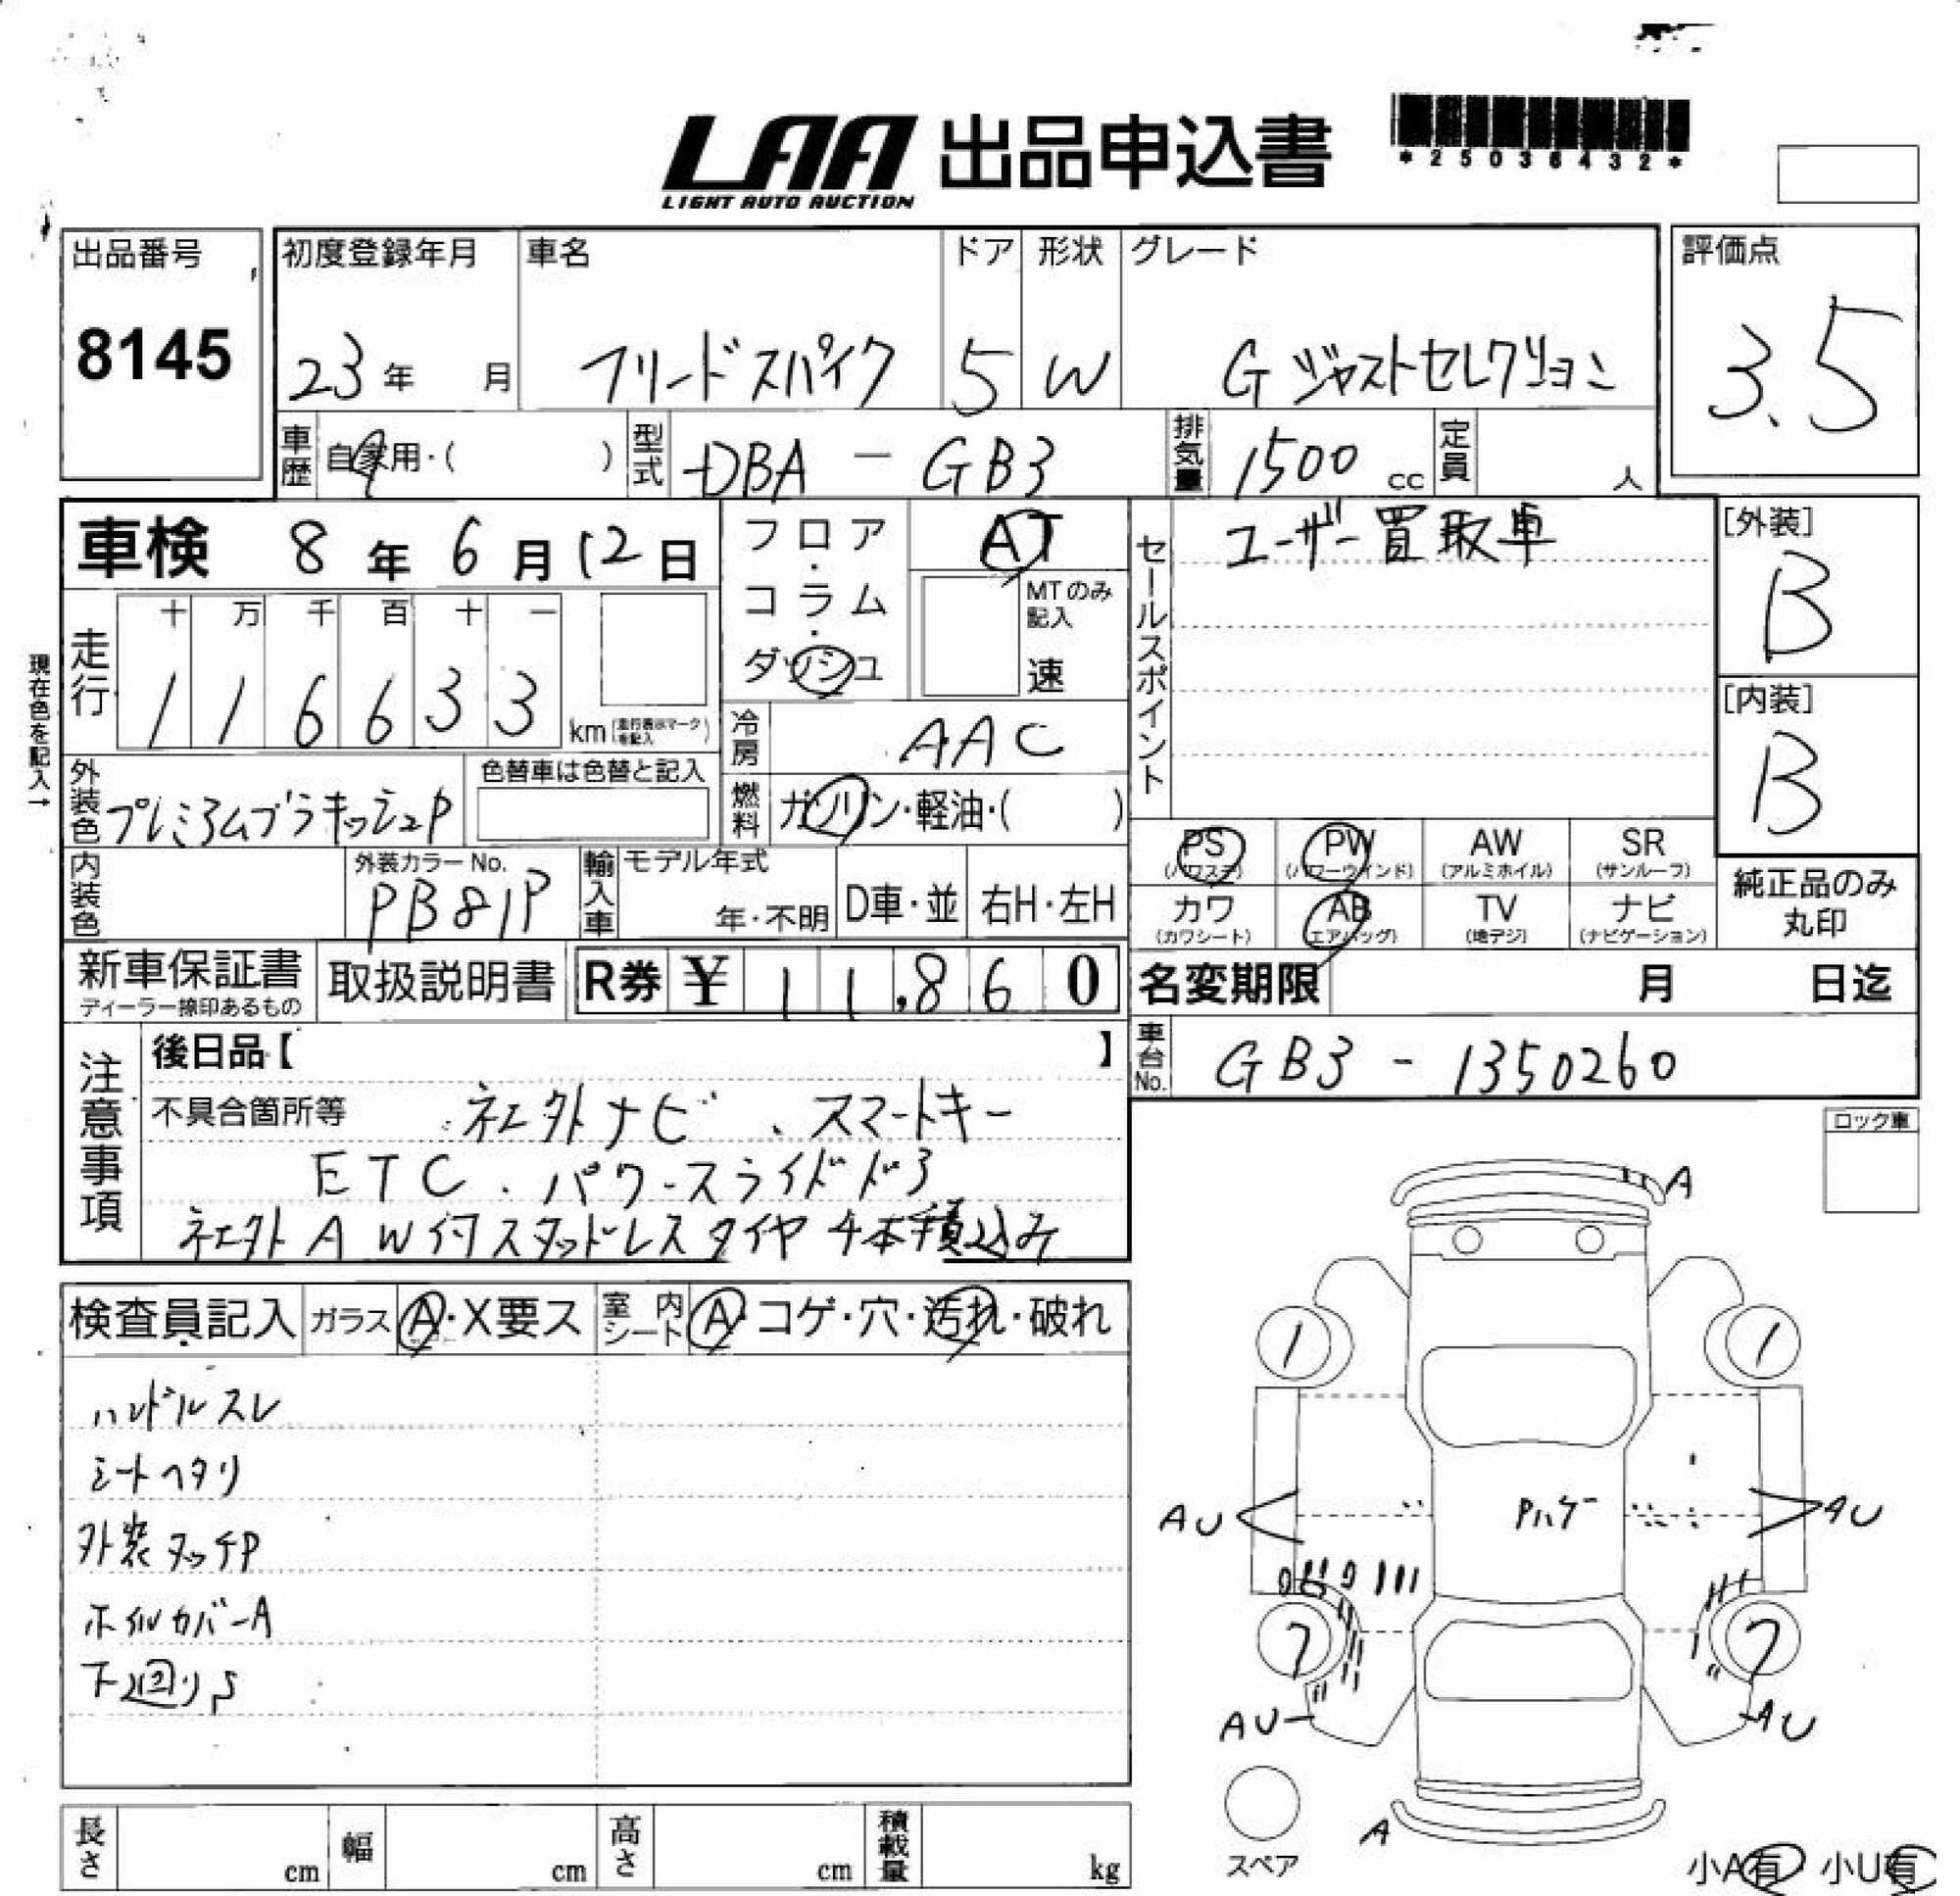 LAA 出品申込書
LIGHT AUTO AUCTION
*25036432*
出品番号
8145
初度登録年月
23年 月
車名
フリードスパイク
ドア
5
形状
W
グレード
G ジャストセレクション
評価点
3.5
車歴 自家用・( )
型式 DBA - GB3
排気量 1500 cc
定員 人
車検 8年 6月 12日
現在色を記入→
走行 十 万 千 百 十 一
1 1 6 6 3 3 km (走行表示マークを記入)
フロア・コラム・ダッシュ
AT
MTのみ記入
速
冷房 AAC
燃料 ガソリン・軽油・( )
セールスポイント
ユーザー買取車
[外装]
B
[内装]
B
外装色 プレミアムブラキッシュP
色替車は色替と記入
内装色
外装カラーNo.
PB81P
輸入車 モデル年式
年・不明 D車・並 右H・左H
PS (パワステ) PW (パワーウインド) AW (アルミホイル) SR (サンルーフ)
カワ (カワシート) AB (エアバッグ) TV (地デジ) ナビ (ナビゲーション)
純正品のみ丸印
新車保証書
ディーラー捺印あるもの
取扱説明書
R券 ¥ 11,860
名変期限 月 日迄
車台No. GB3 - 1350260
注意事項
後日品【 】
不具合箇所等 社外ナビ、スマートキー
ETC、パワースライドドア
社外AW付スタッドレスタイヤ4本積込み
ロック車
検査員記入 ガラス A・X要ス 室内シート A・コゲ・穴・汚れ・破れ
ハンドルスレ
シートヘタリ
外装タッチP
ホイルカバーA
下廻りS
A
1 1
AU Pハゲ AU
7 7
AU AU
A
スペア
小A有 小U有
長さ cm 幅 cm 高さ cm 積載量 kg